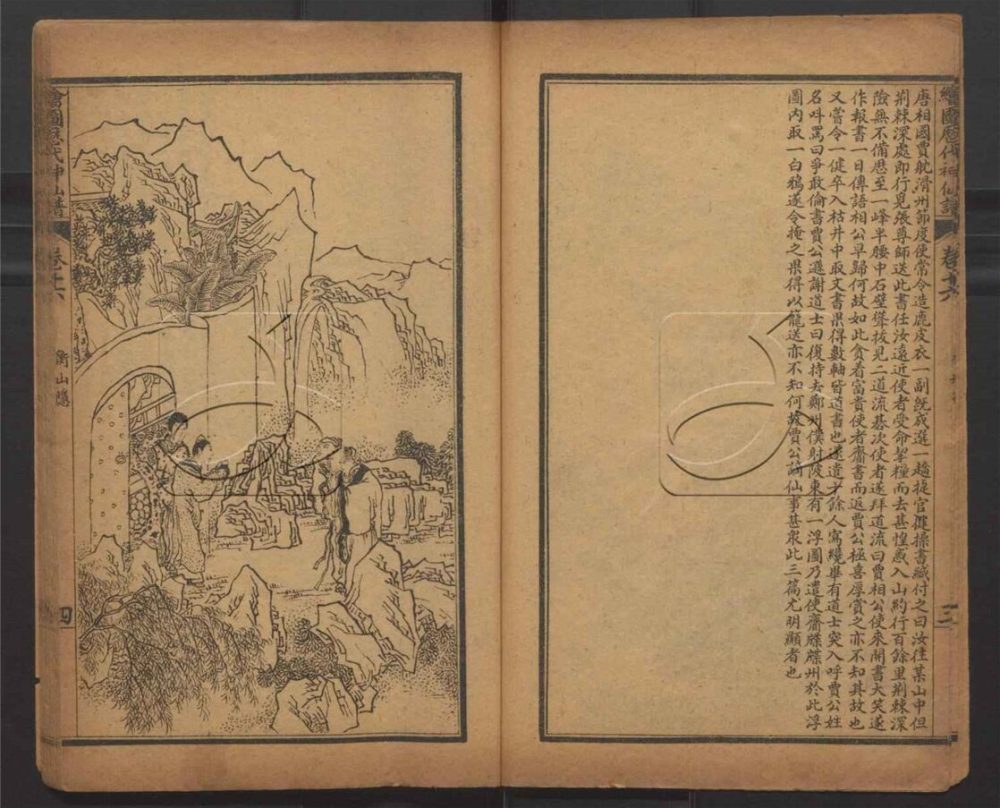 繪圖歷代神仙譜
卷十六
三
唐相國賈躭滑州節度使常令造鹿皮衣一副旣成選一趫捷官健操書緘付之曰汝往某山中但
荆棘深處即行覓張尊師送此書任汝遠近使者受命挈糧而去甚惶惑入山約行百餘里荆棘深
險無不備歷至一峰半腰中石壁聳拔見二道流碁次使者遂拜道流曰賈相公使來開書大笑遂
作報書一日傳語相公早歸何故如此貪着富貴使者齎書而返賈公極喜厚賞之亦不知其故也
又嘗令一健卒入枯井中取文書果得數軸皆道書也遂遣十餘人寫纔畢有道士突入呼賈公姓
名呌罵曰爭敢偷書賈公遜謝道士曰復持去鄭州僕射陂東有一浮圖乃遣使齎牒牒州於此浮
圖內取一白鴉遂令掩之果得以籠送亦不知何故賈公謫仙事甚衆此三篇尤明顯者也
繪圖歷代神仙譜
卷十六
衡山隱
四